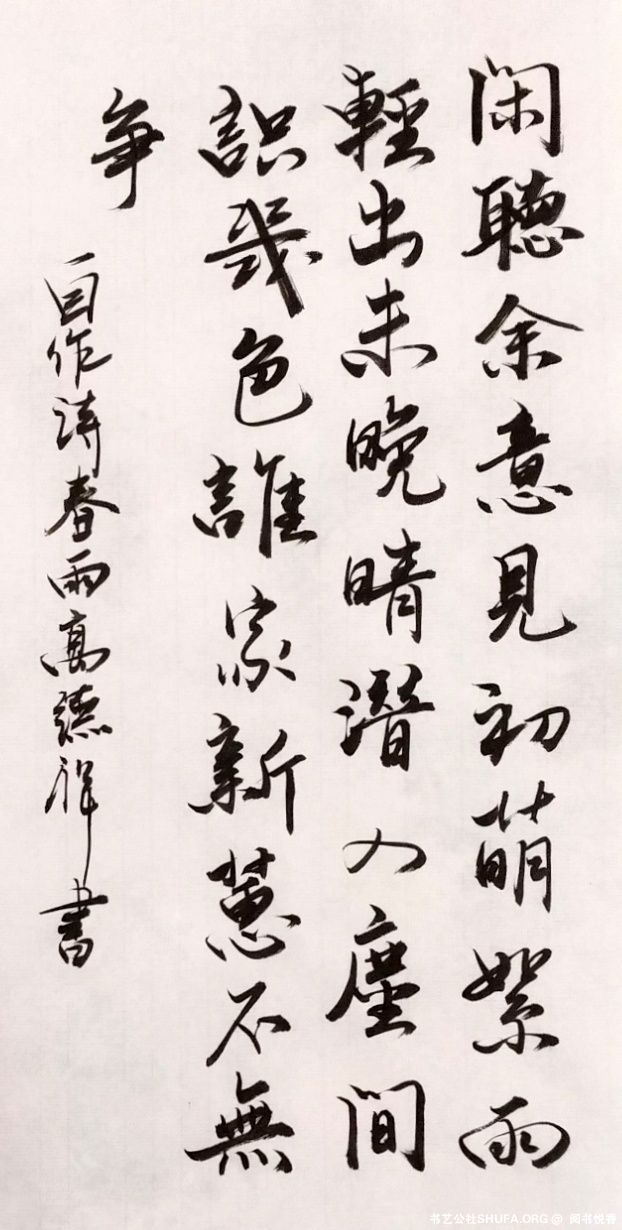 閑聽余意見初萌絮雨
輕出未晚晴潛入塵間
識幾色誰家新蕙不無
争
自作詩春雨高德祥書
书艺公社SHUFA.ORG @